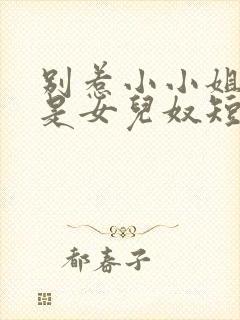 别惹小小姐
是女兒奴短
都春子